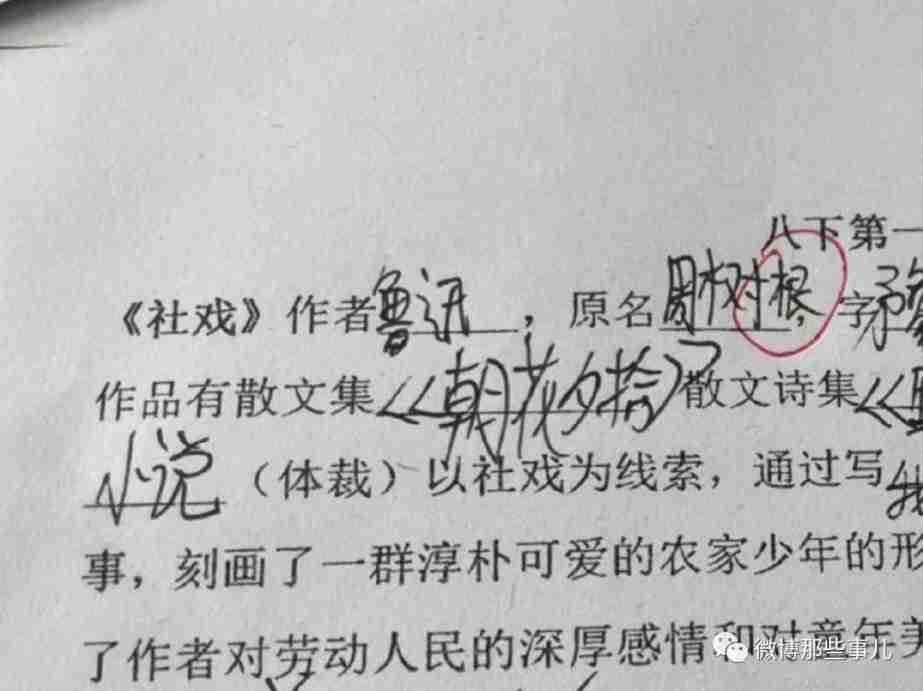 八下第一
《社戏》作者鲁迅，原名周树根，字豫
作品有散文集《朝花夕拾》散文诗集《
小说（体裁）以社戏为线索，通过写我
事，刻画了一群淳朴可爱的农家少年的形
了作者对劳动人民的深厚感情和对童年美
微博那些事儿